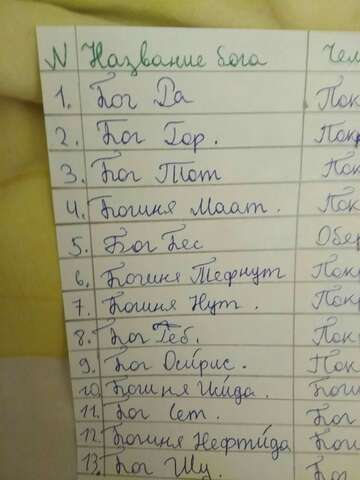 N Название бога Чем
1. Бог Ра Пок
2. Бог Гор. Покр
3. Бог Тот Пок
4. Богиня Маат. Пок
5. Бог Бес Обер
6. Богиня Тефнут Покр
7. Богиня Нут. Покр
8. Бог Геб. Пок
9. Бог Оси́рис. Пок
10. Богиня Иси́да. Боги
11. Бог Сет. Бог
12. Богиня Нефти́да Боги
13. Бог Шу. Бог